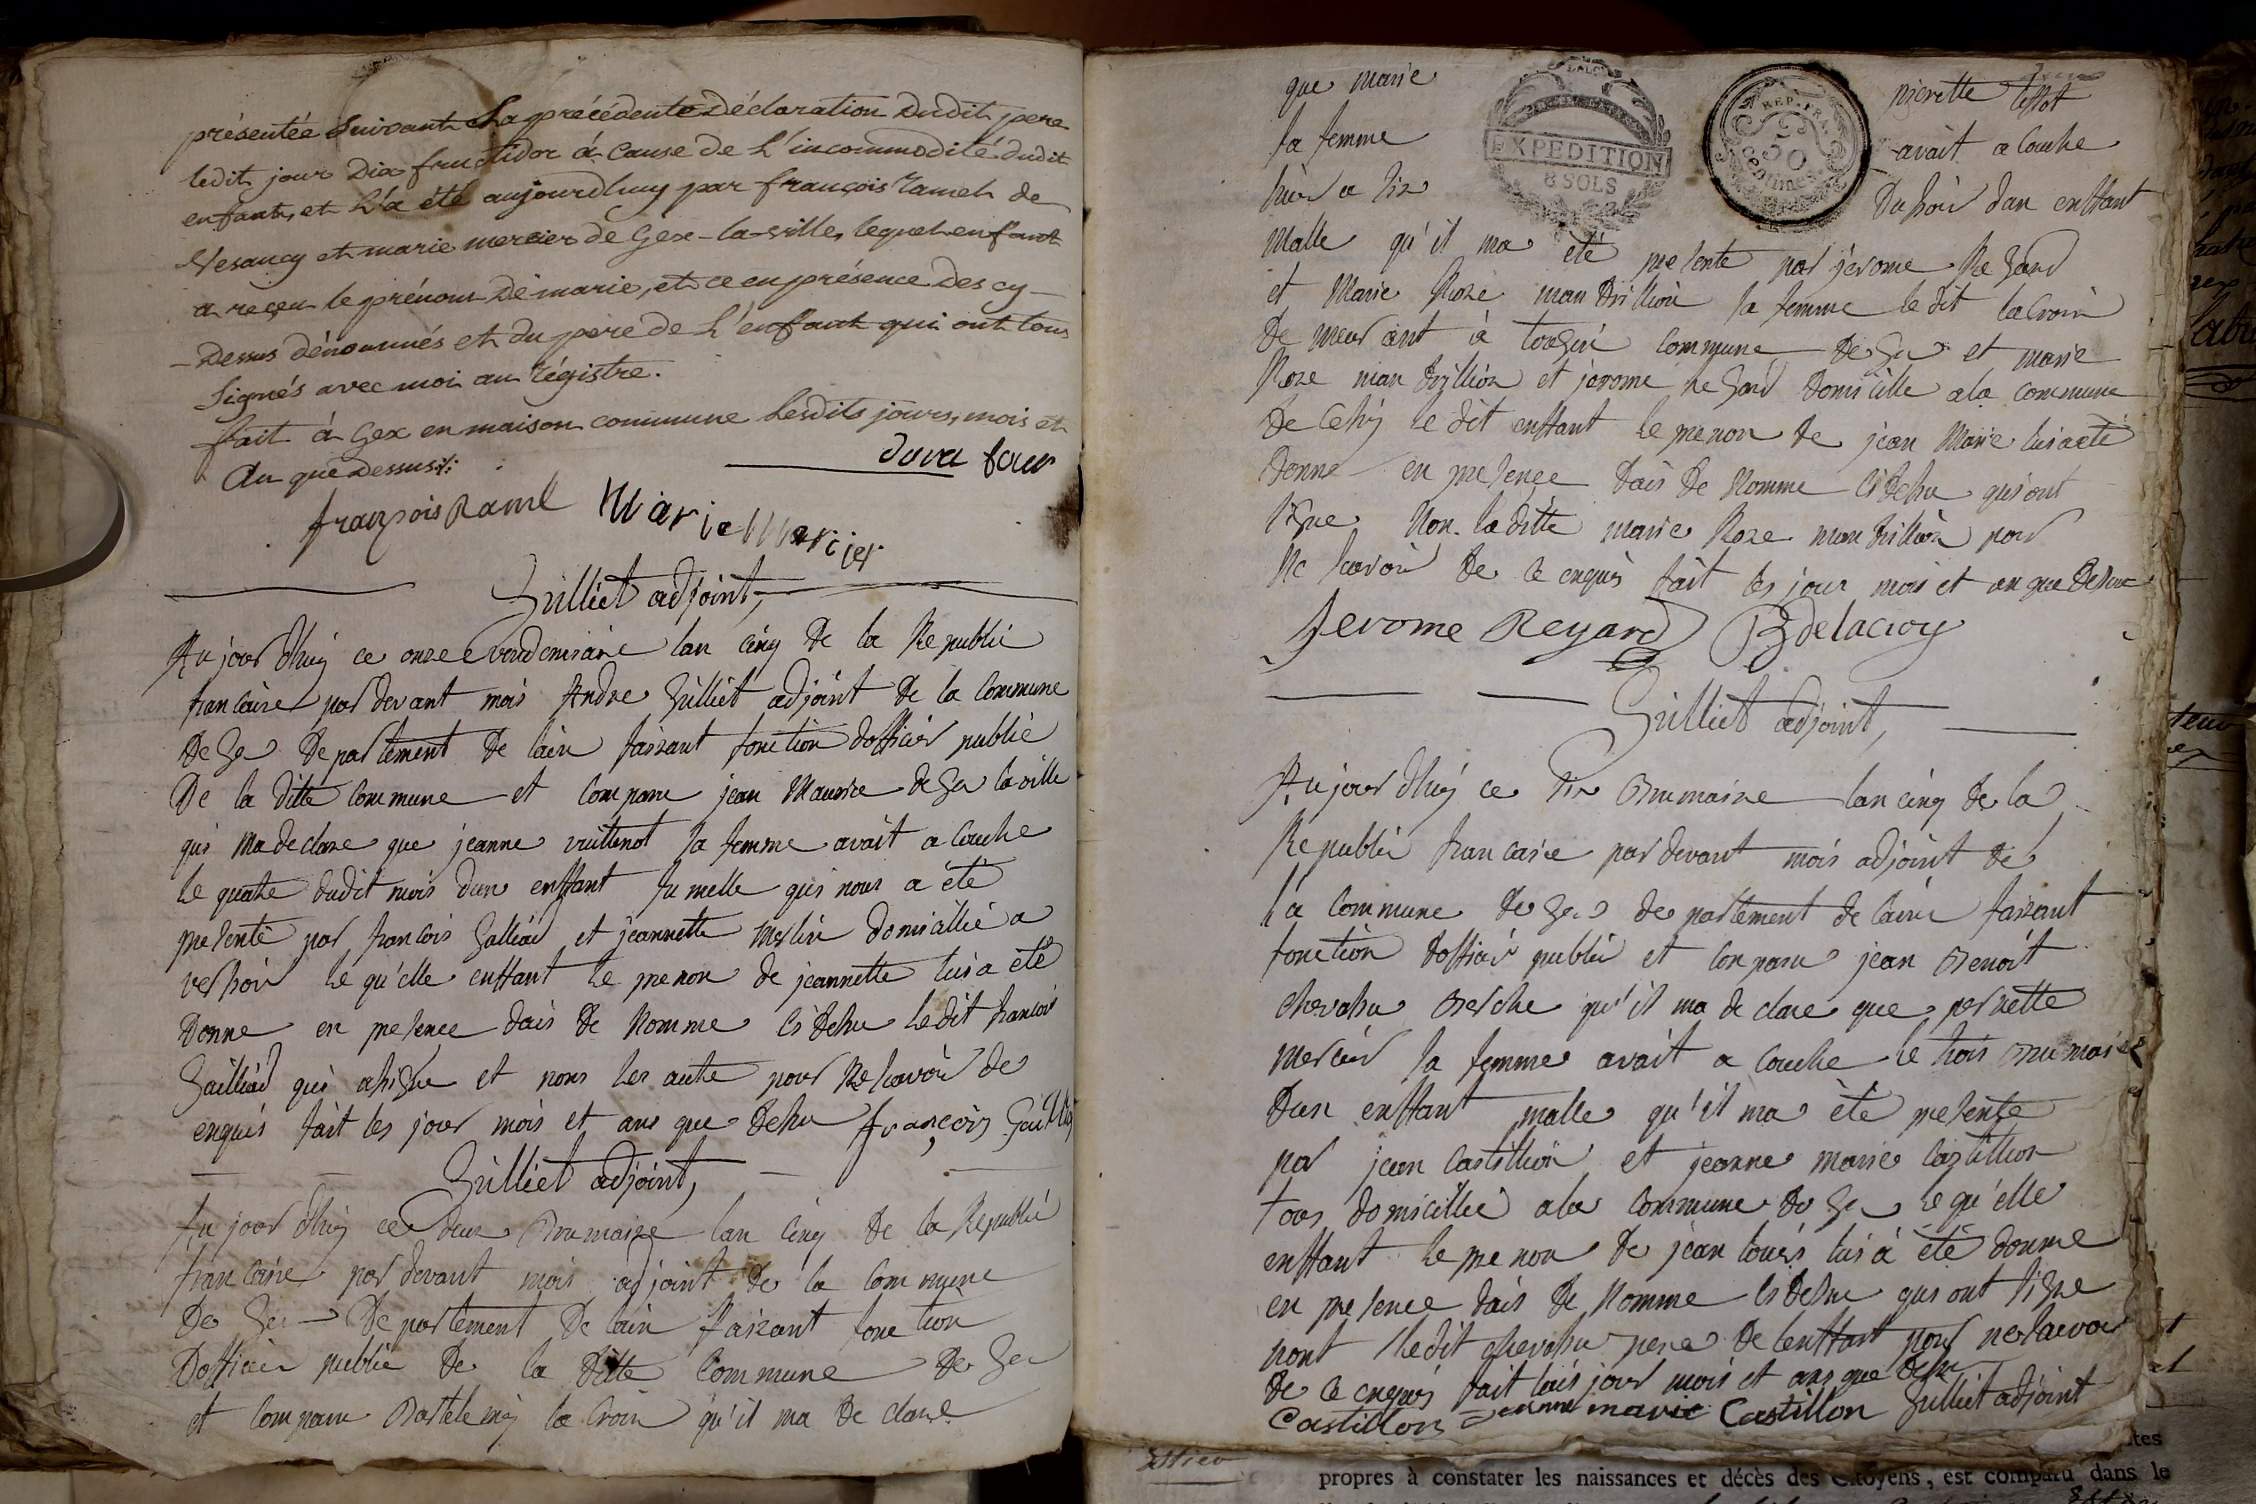 présentée suivant la précédente Déclaration Dudit pere
ledit jour Dix fructidor à cause de L'incommodité dudit
enfant, et L'a été aujourdhuy par françois Ramel de
Vesancy et marie mercier de Gex-la-ville, lequel enfant
a reçeu le prénom De marie, et ce en présence Des cy-
-Dessus dénommés et du père de L'enfant qui ont tous
signés avec moi au régistre.
fait à Gex en maison commune Lesdits jours, mois et
An que Dessus.
françois Ramel Marie Marcier
Gilliet adjoint,
Au jour d'huy ce onze vendemiaire lan cinq De la Republic
francaise par devant mois Andre Gilliet adjoint De la Commune
De Gex De partement De lain faizant fonction dofficier public
De la ditte commune et compare jean Maurice de Gex la ville
qui Ma declare que jeanne vuittenot sa femme avait a couche
le quatre dudit mois dun enffant fu melle qui nous a été
presente par francois Galliad et jeannette Merlin domicillié a
versoir le qu'elle enffant le prenon de jeannette lui a été
Donne en presence dais De Nomme Ci Desu Ledit francois
Gailliad qui asigne et nons les autre pour Ne savoir de
enquis fait les jour mois et ans que desu françois Gailliad
Gilliet adjoint,
Au jour d'huy ce deux Brumaire lan cinq de la Republic
francaise par devant mois adjoint De la commune
De Gex De partement De lain faizant fonction
Dofficier public De la ditte Commune De Gex
et compare Bartelemy la Croix qu'il ma De clare
que marie pierette
la femme avait a couche
hier a six Du soir dun enffant
EXPEDITION
8 SOLS
REP. FRA.
50
centimes
Malle qu'il ma été presente par jerome Regard
et Marie Roze mandrillion sa femme le dit lacroix
De meurant à tougin commune De Gex et marie
Roze mandrillion et jerome Regard Domicille ala commune
De Cessy le dit enffant le prenon de jean Marie lui a été
Donne en presence Dais De Nomme Ci Desu qui ont
signe Non. la ditte marie Roze mandrillion pour
Ne savoir De ce enquis fait les jour mois et an que Desu
Jerome Regard B delacroy
Gilliet adjoint,
Au jour d'huy ce six Brumaire lan cinq de la
Republic francaise par devant mois adjoint de
la Commune de Gex de partement de lain faizant
fonction dofficier public et compare jean Benoit
chevassu qu'il ma de clare que pernette
Mercier sa femme avait a couche le trois Brumaire
Dun enffant malle qu'il ma été presente
par jean Castillion et jeanne marie Castillion
tous domicillié ala commune de Gex le qu'elle
enffant le prenon de jean louis lui à été donne
en presence dais De Nomme Ci Desu qui ont signe
nont ledit chevassu pere de lenffant pour ne savoir
De ce enquis fait lais jour mois et ans que desu
Castillon Jeanne marie Castillon Gilliet adjoint
propres à constater les naissances et décès des Citoyens, est comparu dans le